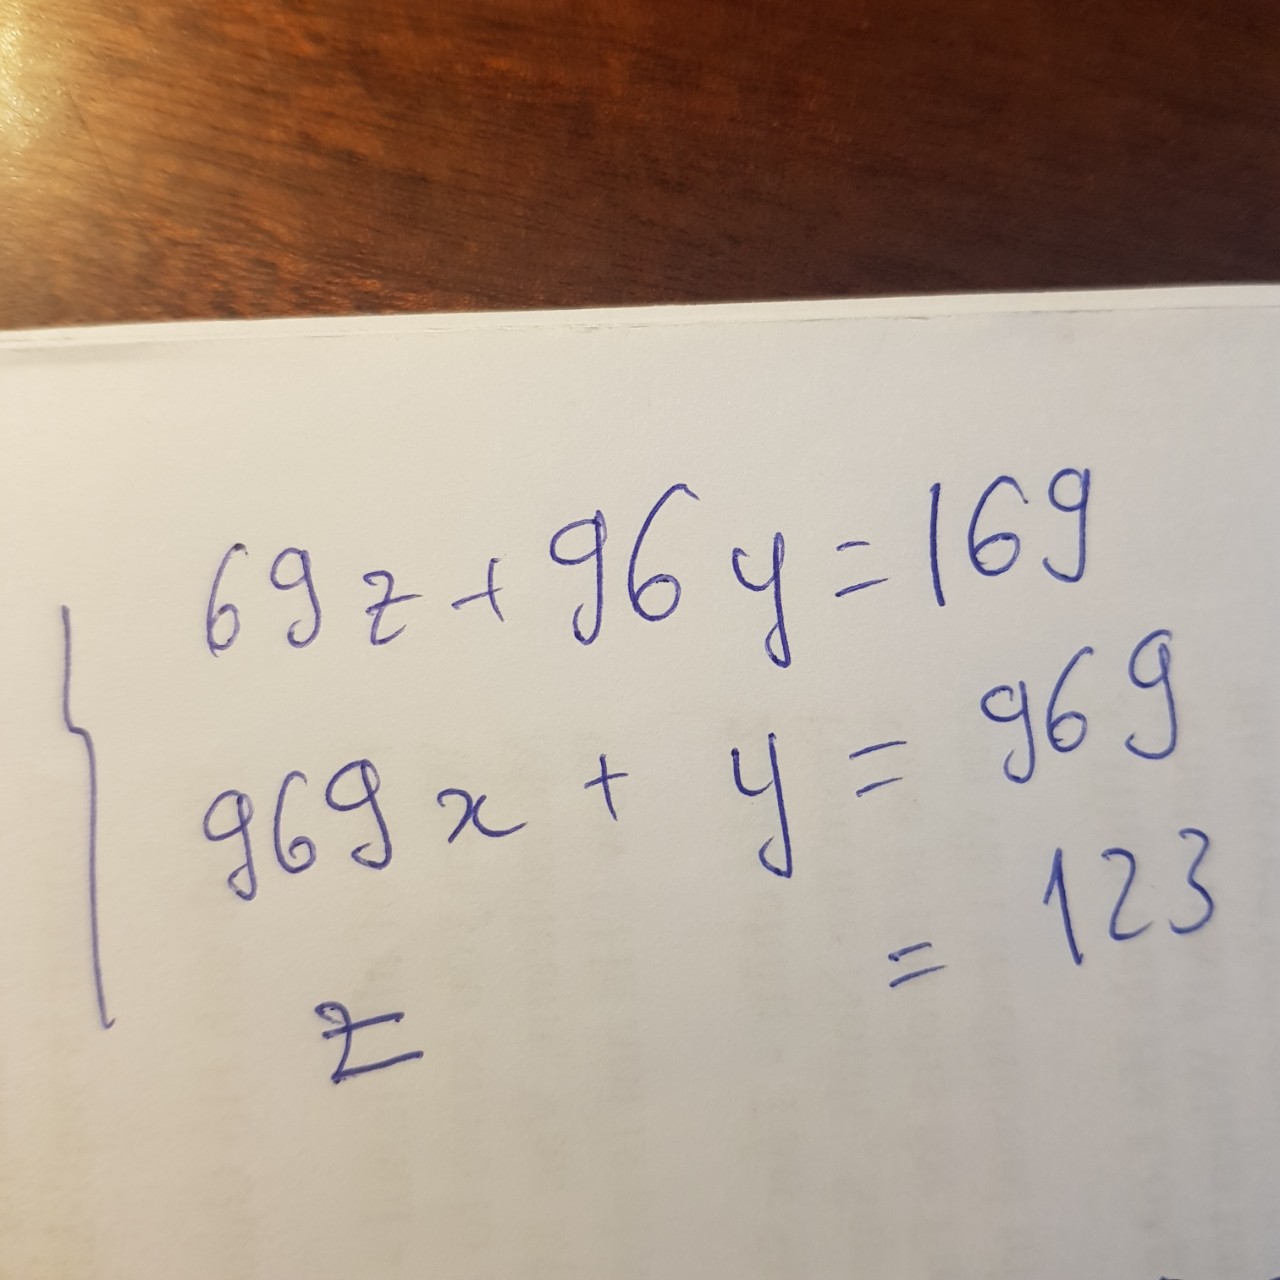 69z + 96y = 169
969x + y = 969
z = 123